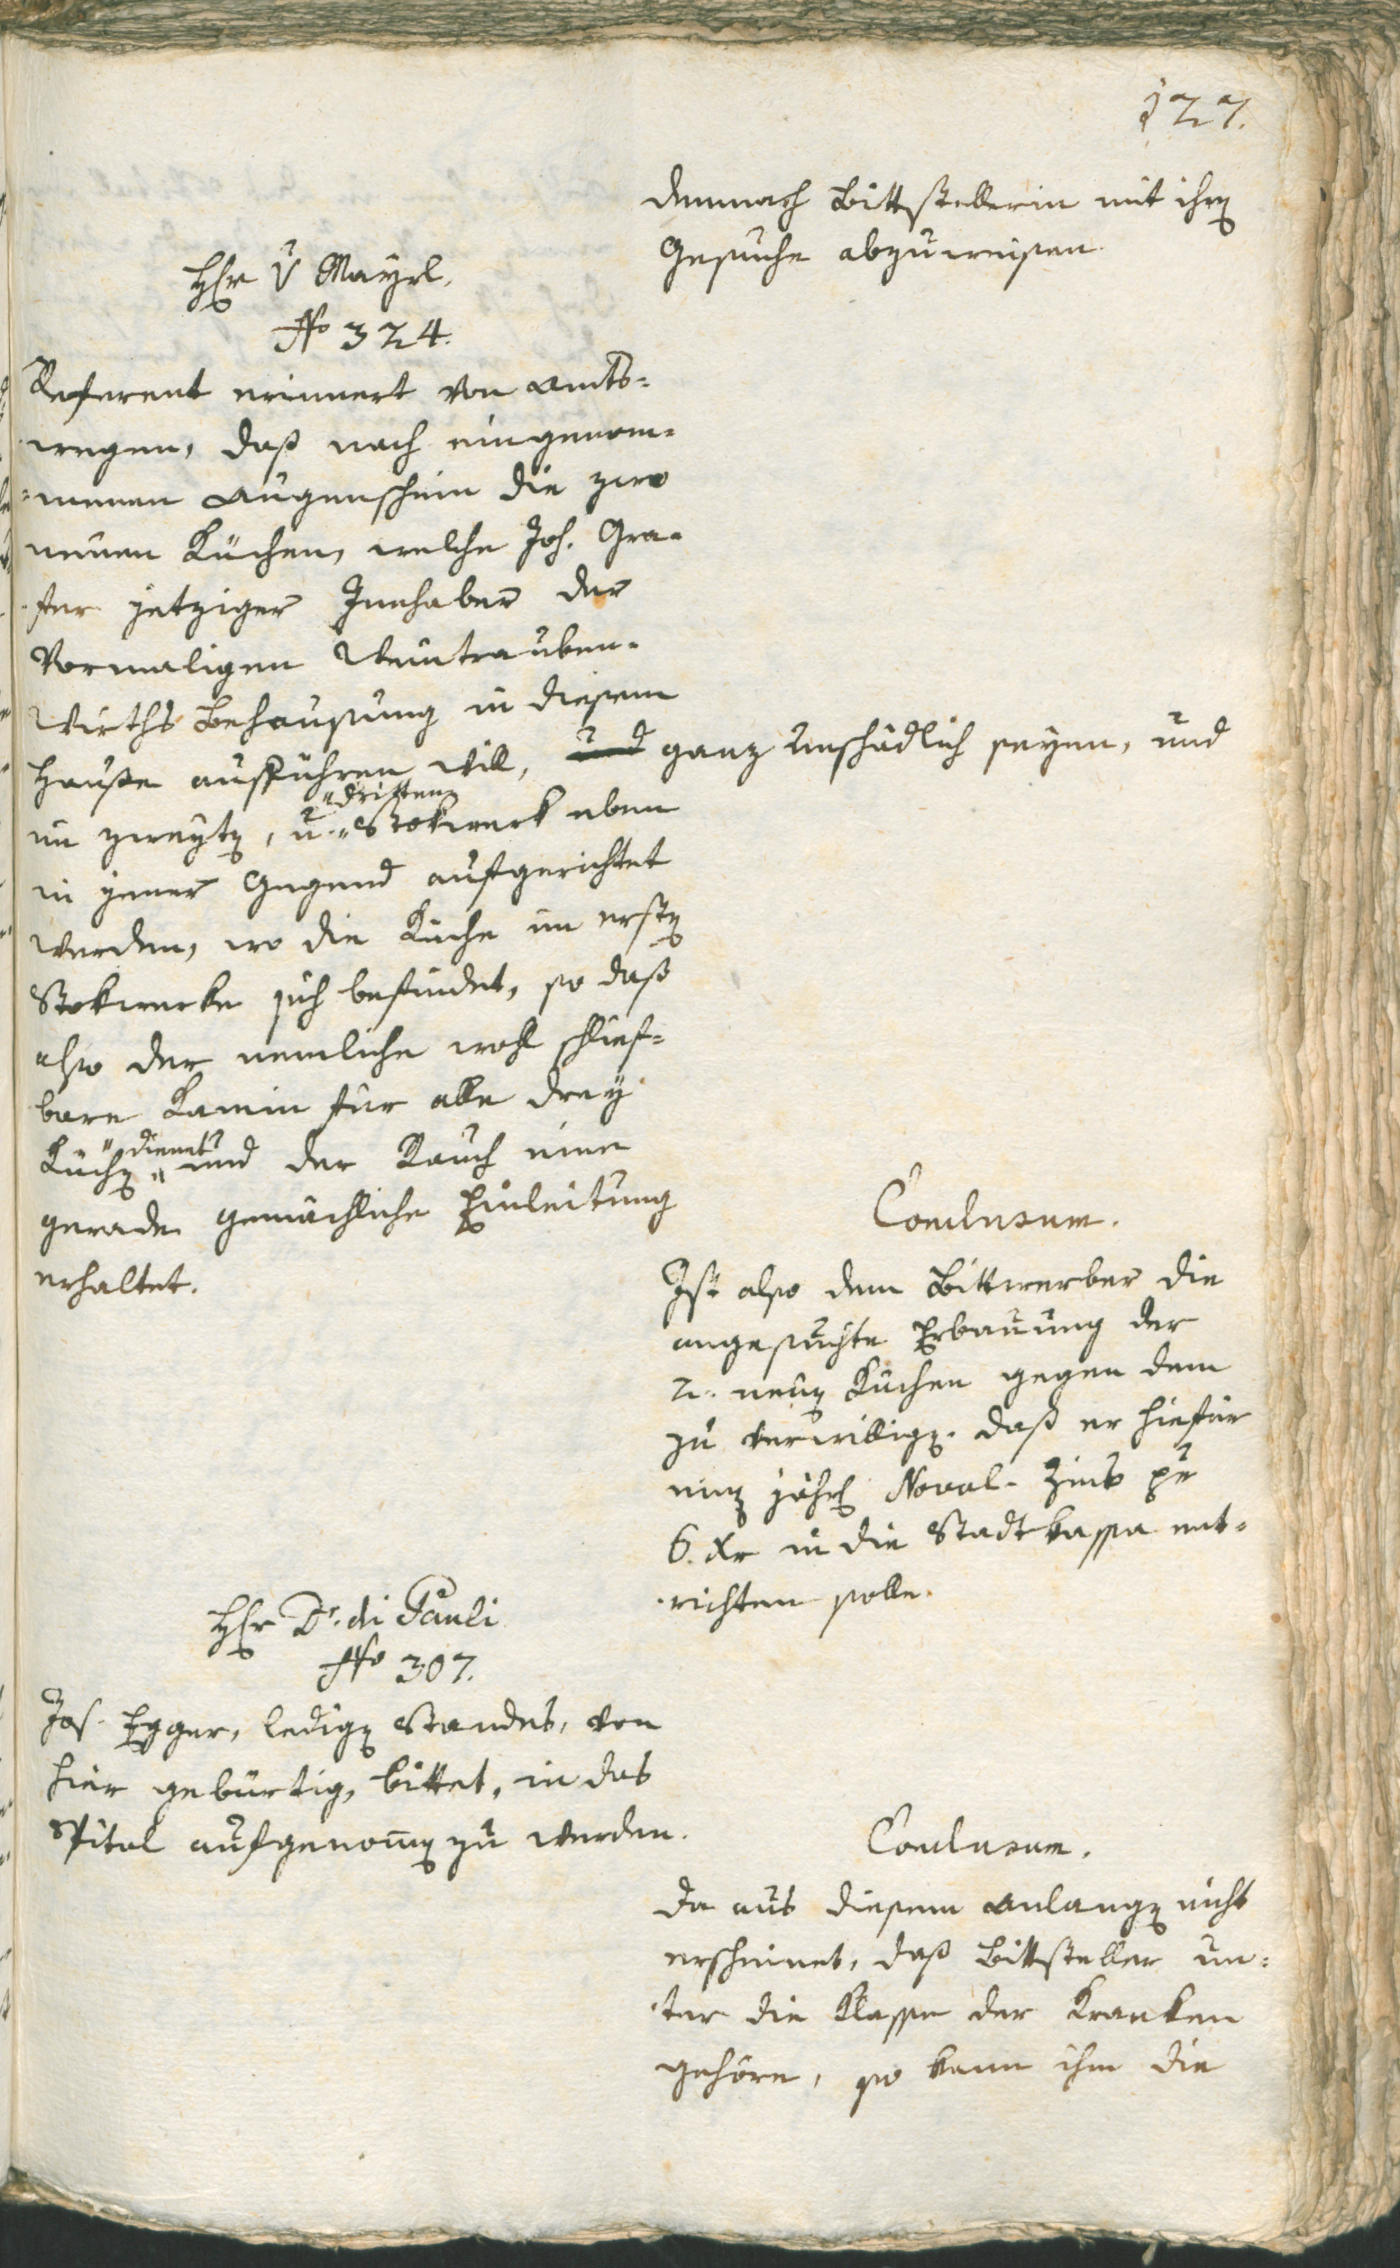 127.
demnach Bittstellerin mit ihrn
Gesuche abzuweisen.
Hr v Mayrl.
No 324.
Referent erinnert von Amts-
wegen, daß nach eingenom-
-menen Augenschein die zwo
neuen Küchen, welche Joh. Gra-
-ser jetziger Innhaber der
vormaligen Weintrauben-
Wirths Behausung in diesem
Hause ausführen will, und ganz unschädlich seyen, und
im zweyten, u. dritten Stokwerk eben
in jener Gegend aufgerichtet
werden, wo die Küche im ersten
Stokwerke sich befindet, so daß
also der nemliche wohl schlief-
bare Kamin für alle drey
Küchen dienet, und der Rauch eine
gerade gemächliche Einleitung
erhaltet.
Conclusum.
Ist also dem Bittwerber die
angesuchte Erbauung der
2. neuen Küchen gegen dem
zu verwilligen. daß er hiefür
einen jährl Noval-Zins pr
6. Xr in die Stadtkassa ent-
-richten solle.
Hr Dr. di Pauli
No 307.
Jos. Egger, ledigen Standes, von
hier gebürtig, bittet, in das
Spital aufgenommen zu werden.
Conclusum.
Da aus diesem Anlangen nicht
erscheinet, daß Bittsteller un-
-ter die Klasse der Kranken
gehöre, so kann ihm die